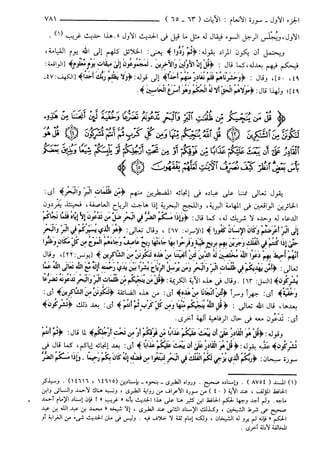 الجزء الأول - سورة الأنعام : الآيات (٦٣ - ٦٥) ٧٨١
الأول، ويُجلَس الرجل السوء فيقال له مثل ما قيل في الحديث الأول». هذا حديث غريب (١) .
ويحتمل أن يكون المراد بقوله: ﴿ثُمَّ رُدُّوا﴾ يعني: الخلائق كلهم إلى الله يوم القيامة،
فيحكم فيهم بعدله، كما قال : ﴿قُلْ إِنَّ الْأَوَّلِينَ وَالْآخِرِينَ . لَمَجْمُوعُونَ إِلَى مِيقَاتِ يَوْمٍ مَعْلُومٍ﴾ [الواقعة:
٤٩، ٥٠]، وقال : ﴿وَحَشَرْنَاهُمْ فَلَمْ نُغَادِرْ مِنْهُمْ أَحَدًا﴾ إلى قوله: ﴿وَلَا يَظْلِمُ رَبُّكَ أَحَدًا﴾ [الكهف:٤٧-
٤٩]؛ ولهذا قال: ﴿مَوْلَاهُمُ الْحَقِّ أَلَا لَهُ الْحُكْمُ وَهُوَ أَسْرَعُ الْحَاسِبِينَ﴾.
﴿قُلْ مَنْ يُنَجِّيكُمْ مِنْ ظُلُمَاتِ الْبَرِّ وَالْبَحْرِ تَدْعُونَهُ تَضَرُّعًا وَخُفْيَةً لَئِنْ أَنْجَانَا مِنْ هَذِهِ
لَنَكُونَنَّ مِنَ الشَّاكِرِينَ قُلِ اللَّهُ يُنَجِّيكُمْ مِنْهَا وَمِنْ كُلِّ كَرْبٍ ثُمَّ أَنْتُمْ تُشْرِكُونَ قُلْ هُوَ
الْقَادِرُ عَلَى أَنْ يَبْعَثَ عَلَيْكُمْ عَذَابًا مِنْ فَوْقِكُمْ أَوْ مِنْ تَحْتِ أَرْجُلِكُمْ أَوْ يَلْبِسَكُمْ شِيَعًا
وَيُذِيقَ بَعْضَكُمْ بَأْسَ بَعْضٍ انْظُرْ كَيْفَ نُصَرِّفُ الْآيَاتِ لَعَلَّهُمْ يَفْقَهُونَ﴾
يقول تعالى ممتنا على عباده في إنجائه المضطرين منهم ﴿مِنْ ظُلُمَاتِ الْبَرِّ وَالْبَحْرِ﴾ أي:
الحائرين الواقعين في المهامه البرية، واللجج البحرية إذا هاجت الرياح العاصفة، فحينئذ يفردون
الدعاء له وحده لا شريك له، كما قال: ﴿وَإِذَا مَسَّكُمُ الضُّرُّ فِي الْبَحْرِ ضَلَّ مَنْ تَدْعُونَ إِلَّا إِيَّاهُ فَلَمَّا نَجَّاكُمْ
إِلَى الْبَرِّ أَعْرَضْتُمْ وَكَانَ الْإِنْسَانُ كَفُورًا﴾ [الإسراء: ٦٧]، وقال تعالى: ﴿هُوَ الَّذِي يُسَيِّرُكُمْ فِي الْبَرِّ وَالْبَحْرِ
حَتَّى إِذَا كُنْتُمْ فِي الْفُلْكِ وَجَرَيْنَ بِهِمْ بِرِيحٍ طَيِّبَةٍ وَفَرِحُوا بِهَا جَاءَتْهَا رِيحٌ عَاصِفٌ وَجَاءَهُمُ الْمَوْجُ مِنْ كُلِّ مَكَانٍ وَظَنُّوا
أَنَّهُمْ أُحِيطَ بِهِمْ دَعَوُا اللَّهَ مُخْلِصِينَ لَهُ الدِّينَ لَئِنْ أَنْجَيْتَنَا مِنْ هَذِهِ لَنَكُونَنَّ مِنَ الشَّاكِرِينَ﴾ [يونس: ٢٢]، وقال
تعالى: ﴿أَمَّنْ يَهْدِيكُمْ فِي ظُلُمَاتِ الْبَرِّ وَالْبَحْرِ وَمَنْ يُرْسِلُ الرِّيَاحَ بُشْرًا بَيْنَ يَدَيْ رَحْمَتِهِ أَإِلَهٌ مَعَ اللَّهِ تَعَالَى اللَّهُ عَمَّا
يُشْرِكُونَ﴾ [النمل: ٦٣]. وقال في هذه الآية الكريمة: ﴿قُلْ مَنْ يُنَجِّيكُمْ مِنْ ظُلُمَاتِ الْبَرِّ وَالْبَحْرِ تَدْعُونَهُ تَضَرُّعًا
وَخُفْيَةً﴾ أي: جهراً وسراً ﴿لَئِنْ أَنْجَانَا مِنْ هَذِهِ﴾ أي: من هذه الضائقة ﴿لَنَكُونَنَّ مِنَ الشَّاكِرِينَ﴾ أي:
بعدها، قال الله تعالى : ﴿قُلِ اللَّهُ يُنَجِّيكُمْ مِنْهَا وَمِنْ كُلِّ كَرْبٍ ثُمَّ أَنْتُمْ﴾ أي: بعد ذلك ﴿تُشْرِكُونَ﴾
أي: تَدْعون معه في حال الرفاهية آلهة أخرى.
وقوله: ﴿قُلْ هُوَ الْقَادِرُ عَلَى أَنْ يَبْعَثَ عَلَيْكُمْ عَذَابًا مِنْ فَوْقِكُمْ أَوْ مِنْ تَحْتِ أَرْجُلِكُمْ﴾ لما قال: ﴿ثُمَّ أَنْتُمْ
تُشْرِكُونَ﴾ عقّبه بقوله: ﴿قُلْ هُوَ الْقَادِرُ عَلَى أَنْ يَبْعَثَ عَلَيْكُمْ عَذَابًا﴾ أي: بعد إنجائه إياكم، كما قال في
سورة سبحان: ﴿رَبُّكُمُ الَّذِي يُزْجِي لَكُمُ الْفُلْكَ فِي الْبَحْرِ لِتَبْتَغُوا مِنْ فَضْلِهِ إِنَّهُ كَانَ بِكُمْ رَحِيمًا . وَإِذَا مَسَّكُمُ الضُّرُّ
(١) المسند (٨٧٥٤) . وإسناده صحيح . ورواه الطبري - بنحوه - بإسنادين (١٤٦١٥ ، ١٤٦١٦) . وسيذكر
الحافظ المؤلف، عند الآية (٤٠) من سورة الأعراف من رواية الطبري ، ونسبه هناك لأحمد والنسائي وابن
ماجه. ولم أجد وجها لحكم الحافظ ابن كثير هنا على هذا الحديث بأنه « غريب » ! فإن إسناد الإمام أحمد
صحيح على شرط الشيخين ، وكذلك الإسناد الثاني عند الطبري ، إلا شيخه « محمد بن عبد الله بن عبد
الحكم » فإنه لم يرو له الشيخان ، ولكنه إمام ثقة لا خلاف فيه . وليس في متن الحديث شيء من الغرابة أو
المخالفة لأدلة أخرى .